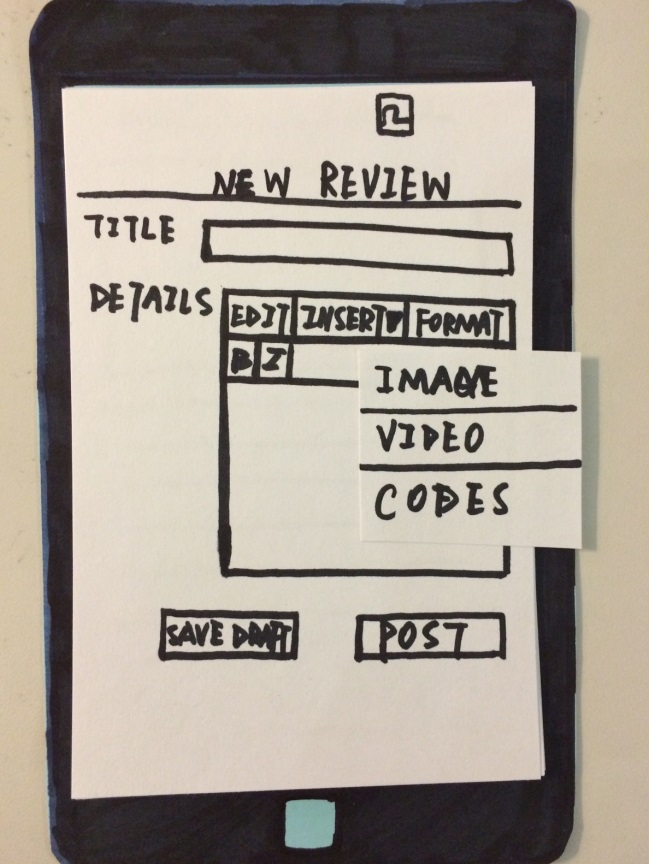 NEW REVIEW
TITLE
DETAILS
EDIT INSERT FORMAT
B I
IMAGE
VIDEO
CODES
SAVE DRAFT POST